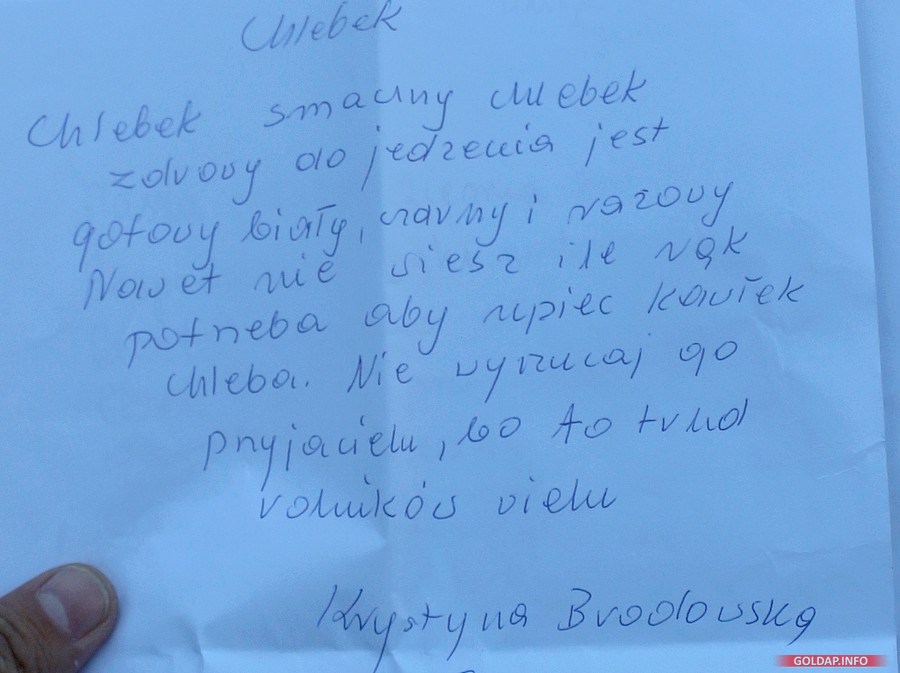 Chlebek
Chlebek smaczny chlebek
zdrowy do jedzenia jest
gotowy biały, czarny i razowy
Nawet nie wiesz ile rąk
potrzeba aby upiec kawłek
chleba. Nie wyrzucaj go
przyjacielu, bo to trud
rolników wielu
Krystyna Brodowska
GOLDAP.INFO